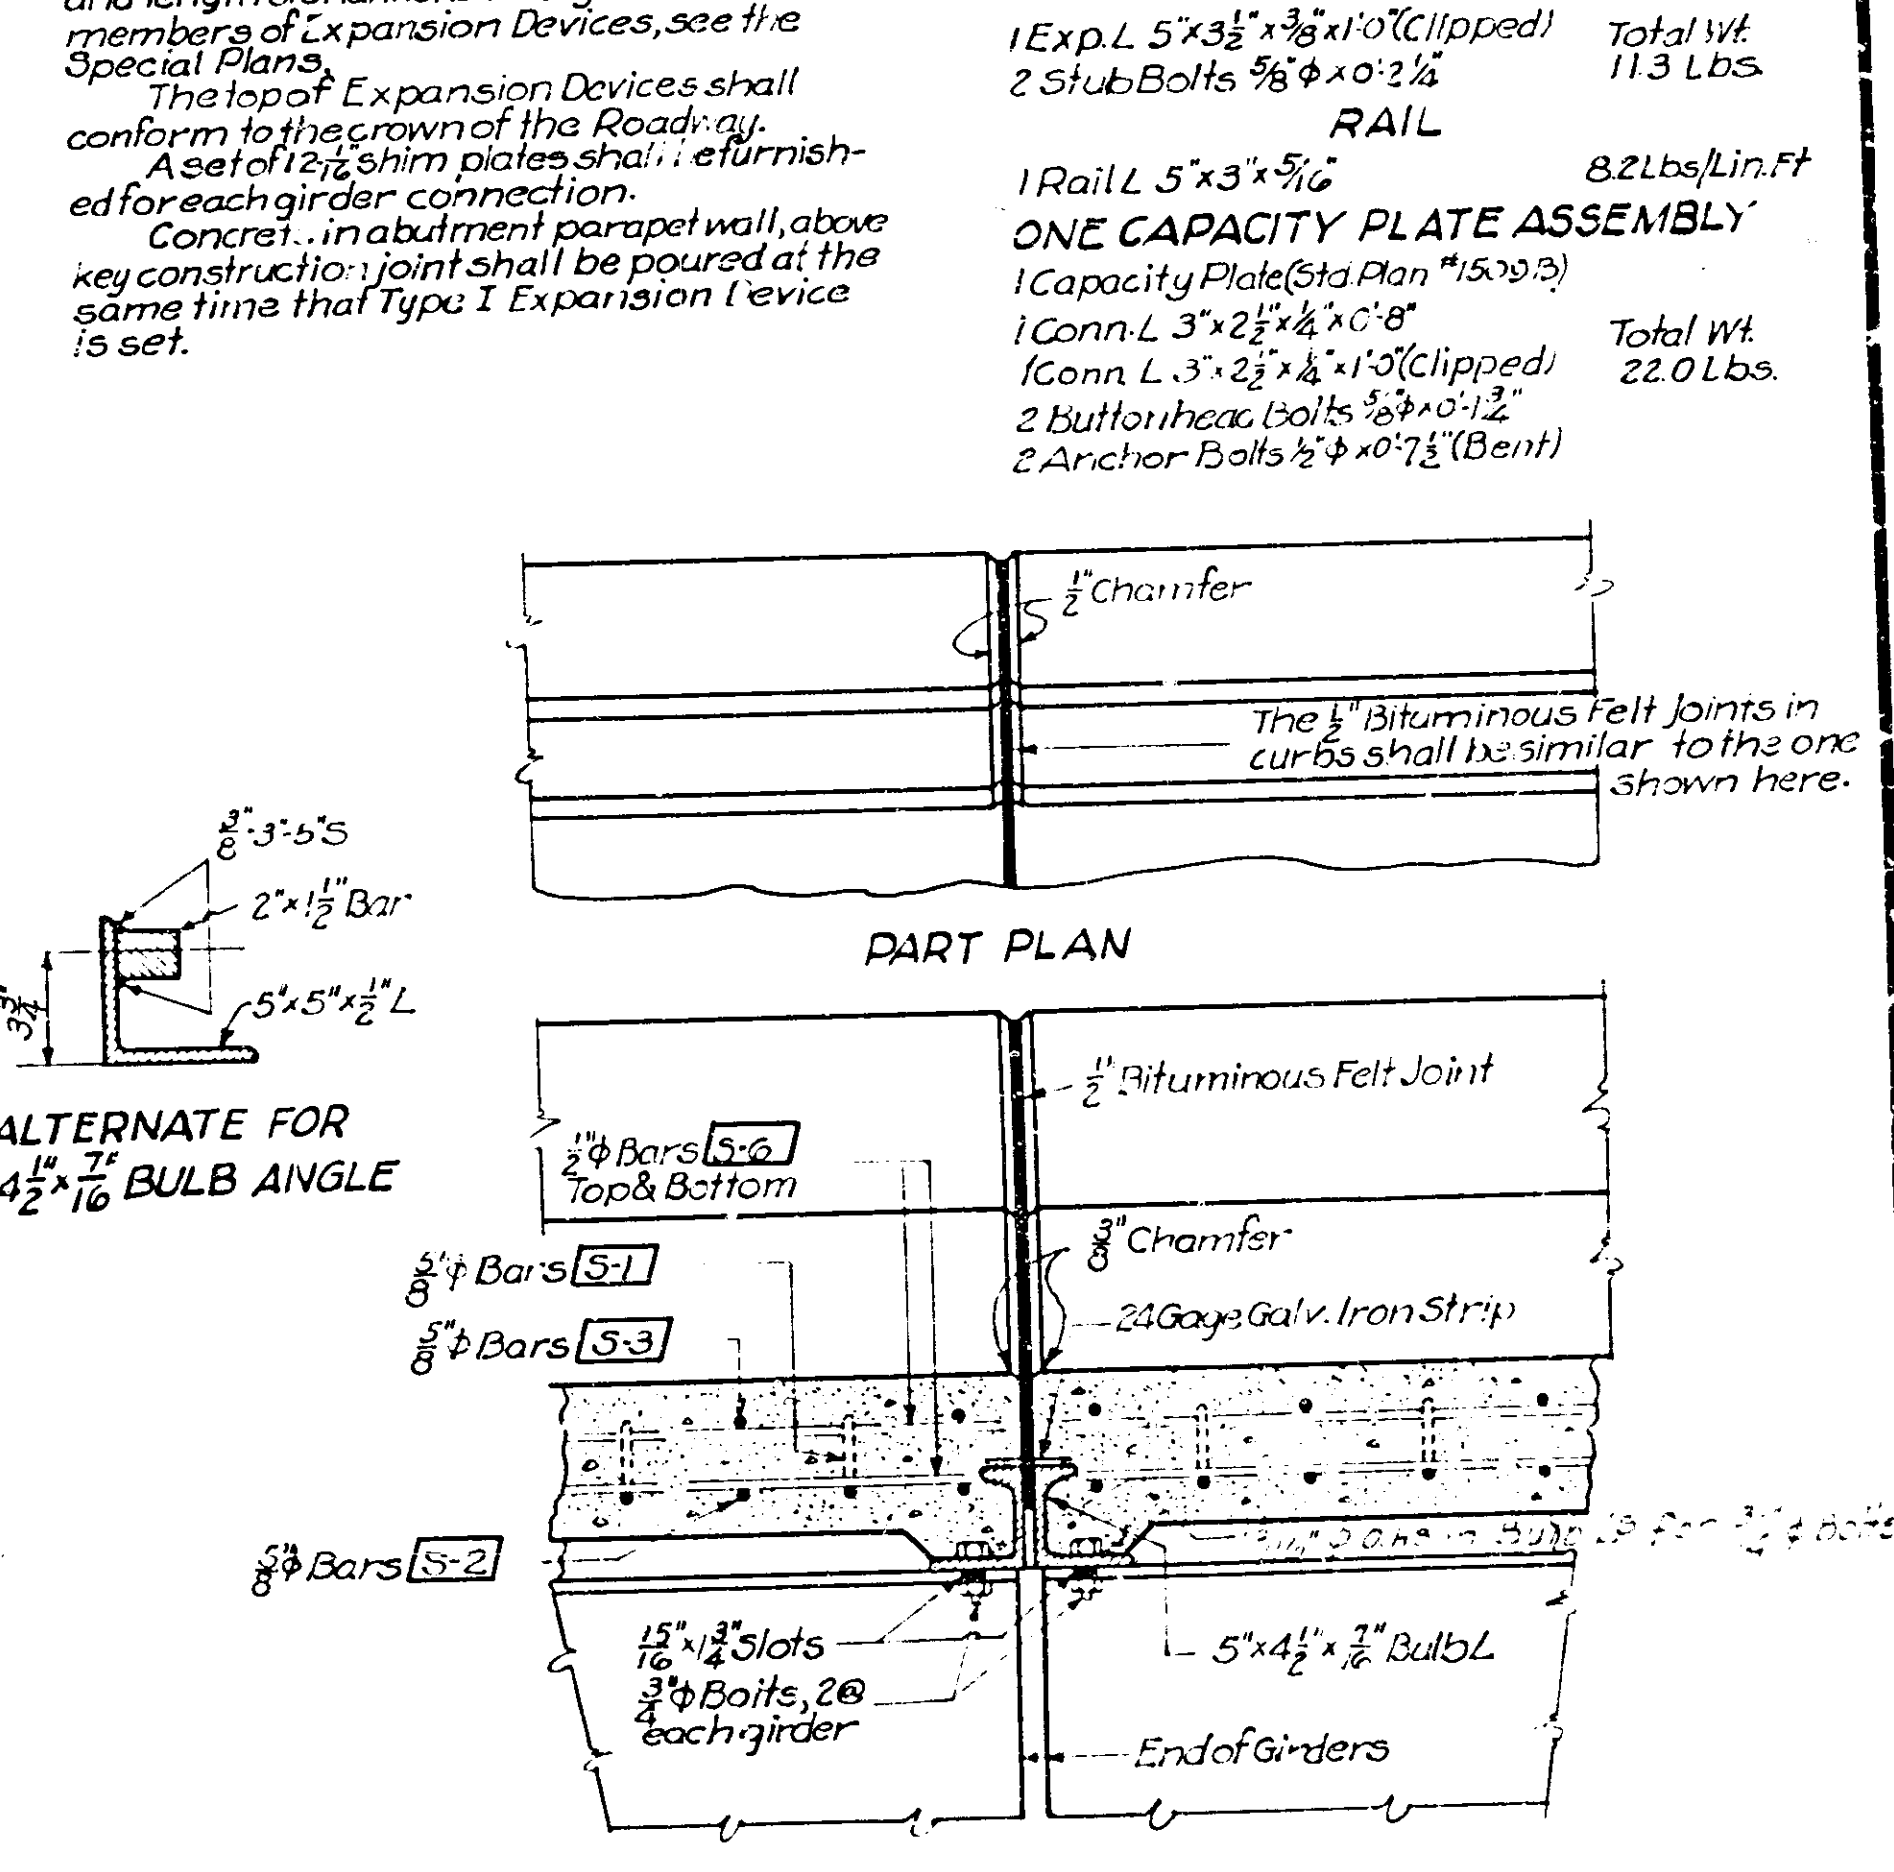 members of Expansion Devices, see the
Special Plans.
The top of Expansion Devices shall
conform to the crown of the Roadway.
A set of 12-1/16" shim plates shall be furnish-
ed for each girder connection.
Concrete in abutment parapet wall, above
key construction joint shall be poured at the
same time that Type I Expansion Device
is set.
1 Exp. L 5"x3 1/2"x3/8"x1'-0"(Clipped)
Total Wt.
2 Stub Bolts 5/8"φ x 0'-2 1/4"
11.3 Lbs.
RAIL
1 Rail L 5"x3"x5/16"
8.2 Lbs/Lin.Ft
ONE CAPACITY PLATE ASSEMBLY
1 Capacity Plate (Std. Plan #1509B)
1 Conn. L 3"x2 1/2"x1/4"x0'-8"
Total Wt.
1 Conn L 3"x2 1/2"x1/4"x1'-0"(Clipped)
22.0 Lbs.
2 Buttonhead Bolts 5/8"φx0'-1 3/4"
2 Anchor Bolts 1/2"φ x0'-7 1/2"(Bent)
1/2" Chamfer
The 1/2" Bituminous Felt Joints in
curbs shall be similar to the one
shown here.
PART PLAN
3/8"-3"-5"S
2"x1 1/2" Bar
3 3/4"
5"x5"x1/2" L
ALTERNATE FOR
4 1/2"x7/16" BULB ANGLE
1/2" Bituminous Felt Joint
1/2"φ Bars S-6
Top & Bottom
3/8" Chamfer
5/8"φ Bars S-1
24 Gage Galv. Iron Strip
5/8"φ Bars S-3
5/8"φ Bars S-2
in Bulb Ls for 3/4"φ Bolts
15/16"x1 3/4" Slots
5"x4 1/2"x7/16" Bulb L
3/4"φ Bolts, 2@
each girder
End of Girders